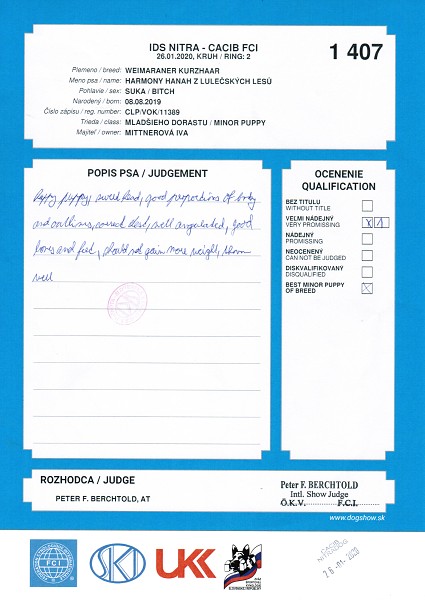 IDS NITRA - CACIB FCI
26.01.2020, KRUH / RING: 2
1 407
Plemeno / breed: WEIMARANER KURZHAAR
Meno psa / name: HARMONY HANAH Z LULEČSKÝCH LESŮ
Pohlavie / sex: SUKA / BITCH
Narodený / born: 08.08.2019
Číslo zápisu / reg. number: CLP/VOK/11389
Trieda / class: MLADŠIEHO DORASTU / MINOR PUPPY
Majiteľ / owner: MITTNEROVÁ IVA
POPIS PSA / JUDGEMENT
puppy, sweet head, good proportions of body
and outlines, correct chest, well angulated, good
bones and feet, should not gain more weight, shown
well
OCENENIE
QUALIFICATION
BEZ TITULU
WITHOUT TITLE
VEĽMI NÁDEJNÝ
VERY PROMISSING
X 1
NÁDEJNÝ
PROMISSING
NEOCENENÝ
CAN NOT BE JUDGED
DISKVALIFIKOVANÝ
DISQUALIFIED
BEST MINOR PUPPY
OF BREED
X
ROZHODCA / JUDGE
PETER F. BERCHTOLD, AT
Peter F. BERCHTOLD
Intl. Show Judge
Ö.K.V. F.C.I.
www.dogshow.sk
FCI
SKJ
UKK
CACIB
NITRA
26 -01- 2020